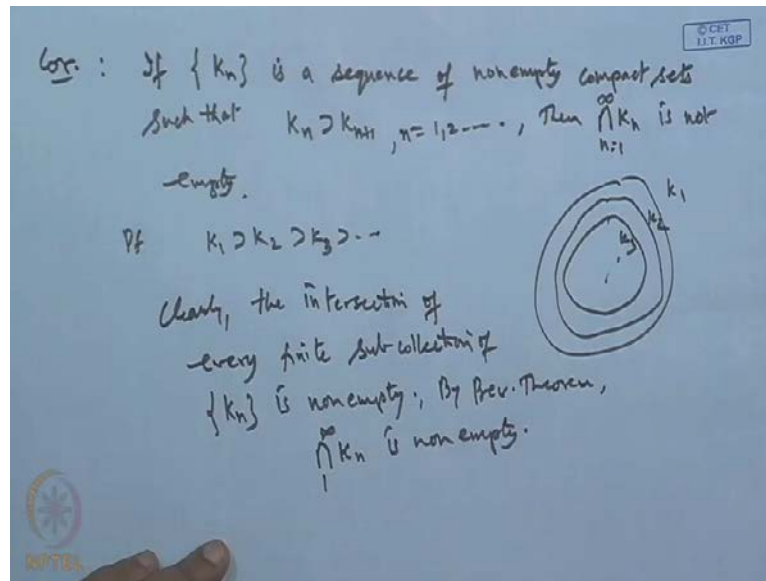 © CET
I.I.T. KGP
Cor. : If {Kn} is a sequence of nonempty compact sets
such that Kn ⊃ Kn+1, n = 1, 2 ----., Then ∞∩n=1 Kn is not
empty.
Pf K1 ⊃ K2 ⊃ K3 ⊃ ...
Clearly, the intersection of
every finite subcollection of
{Kn} is nonempty. By Prev. Theorem,
∞∩1 Kn is non empty.
K1
K2
K3
NPTEL